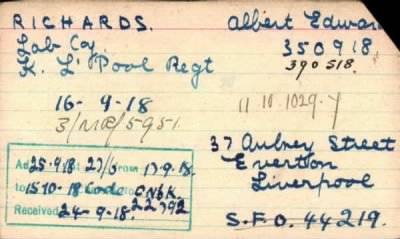 RICHARDS. Albert Edward
Lab Coy. 350918.
K. L'Pool Regt 390518.
16-9-18 11.10.1029-Y
3/MR/5951.
37 Aubrey Street
Everton
Liverpool
Ad 25.9.18 from 17.9.18.
to 15-10-18
22792
Received 24-9-18.
S.F.O. 44219.